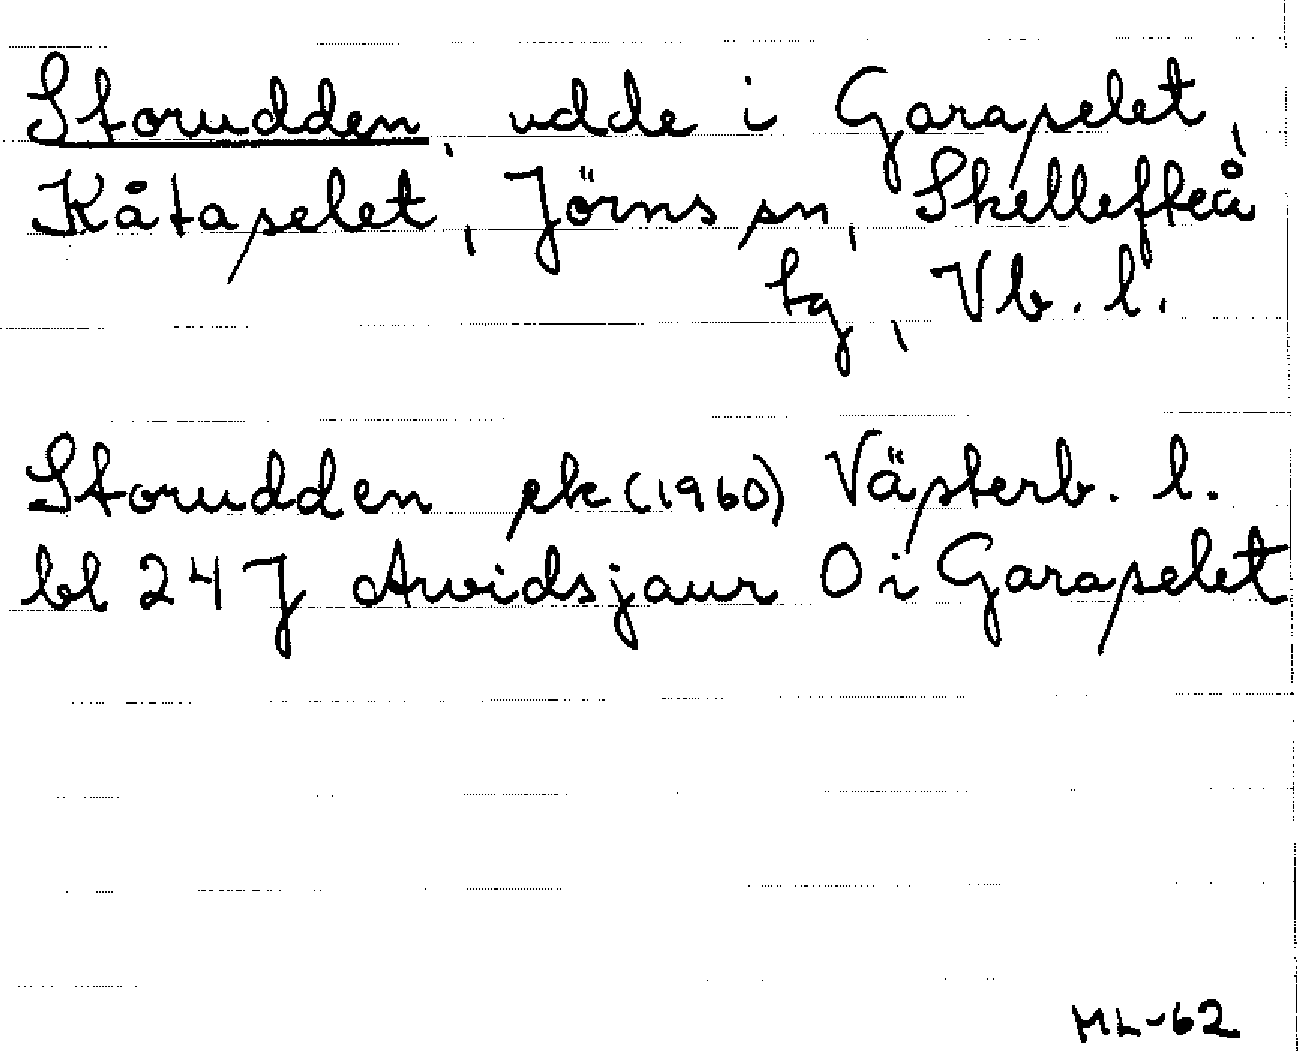 Storudden, udde i Garaselet,
Kåtaselet, Jörns sn, Skellefteå
tg, Vb. l.
Storudden ek (1960) Västerb. l.
bl 24 J Arvidsjaur O i Garaselet
ML-62